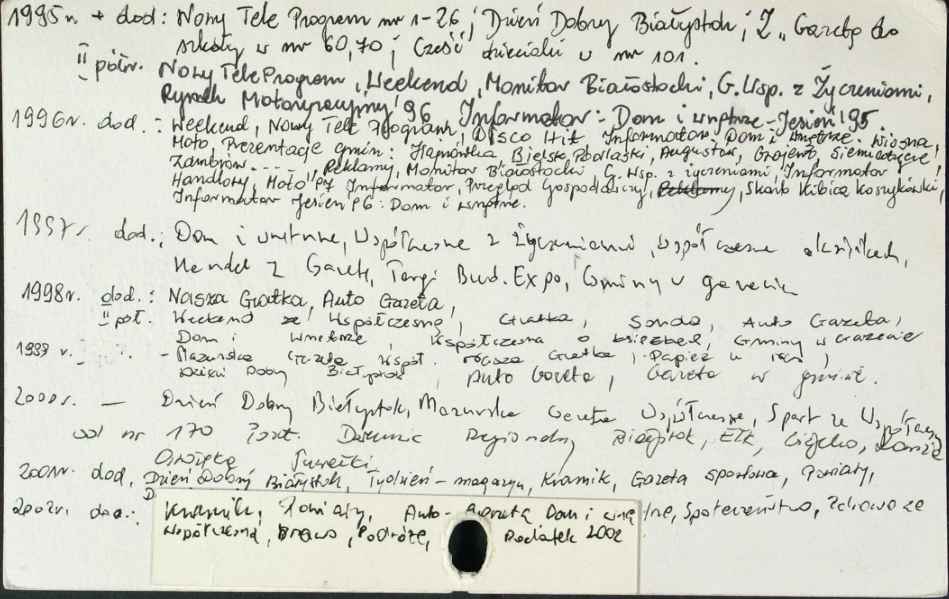 1995r. + dod: Nowy Tele Program nr 1-26; Dzień Dobry Białystok; Z „Gazetą do
szkoły w nr 60,70; Cześć dzieciaki w nr 101.
II półr. Nowy TeleProgram, Weekend, Monitor Białostocki, G. Wsp. z Życzeniami,
Rynek Motoryzacyjny '96 Informator: Dom i wnętrze - Jesień '95
1996r. dod.: Weekend, Nowy Tele Program, Disco Hit Informator. Dom i wnętrze. Wiosna,
Moto, Prezentacje gmin: Hajnówka, Bielsk Podlaski, Augustów, Grajewo, Siemiatycze!
Zambrów... Reklamy, Monitor Białostocki G. Wsp. z życzeniami, Informator
Handlowy, Moto '97 Informator, Przegląd Gospodarczy, Skarb Kibica Koszykówki,
Informator Jesień '96: Dom i wnętrze.
1997r. dod.: Dom i wnętrze, Współczesna z Życzeniami, Współczesna o książkach,
Handel z Gazetą, Targi Bud. Expo, Gminy w gazecie
1998r. dod.: Nasza Gratka, Auto Gazeta,
II pół. Weekend ze Współczesną, Gratka, Sonda, Auto Gazeta,
Dom i wnętrze, Współczesna o książkach, Gminy w Gazecie
1999 r. - Mazurska Gazeta Współ. Nasza Gratka,
Dzień Dobry Białystok, Auto Gazeta, Gazeta w gminie.
2000r. — Dzień Dobry Białystok, Mazurska Gazeta Współczesna, Sport ze Współczesną
od nr 170 Dziennik Regionalny Białystok, Ełk, Giżycko, Łomża
Ostrołęka Suwałki
2001r. dod. Dzień Dobry Białystok, Tydzień - magazyn, Kramik, Gazeta sportowa, Powiaty,
2002r. dod.: Kramik, Powiaty, Auto-Gazeta Dom i wnętrze, Społeczeństwo, Zdrowo ze
Współczesną, Brawo, Podróże, Dodatek 2002